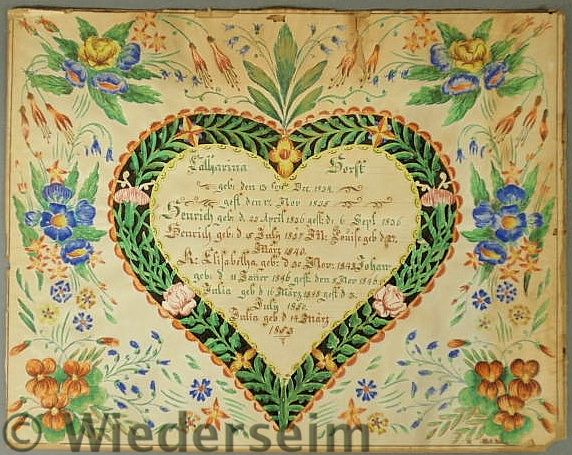 Catharina Horff
geb: den 13 Dec. 1834.
gest. den 12 Nov 1835
Henrich geb: d. 23 April 1836 gest: d. 6 Sept. 1836
Henrich geb: d. 15 July 1837. M: Louise geb d 27.
März 1840.
R: Elisabetha geb: d 30 Nov: 1843 Johan
geb: d 11 Jäner 1846 gest. den 8 Nov 1846
Julia geb d 16 März 1848 gest d 3.
July 1850.
Julia geb d 14 März
1853
© Wiederseim